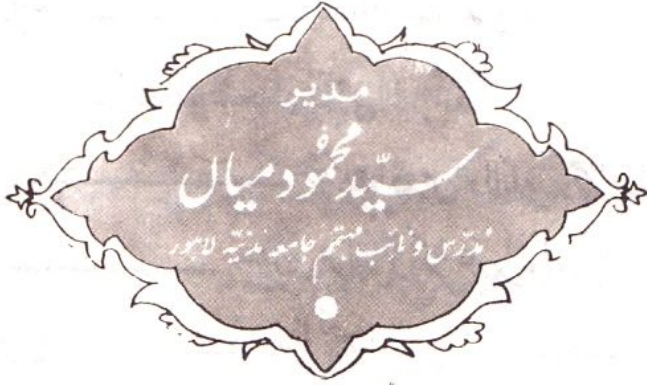 مدیر
سیّد محمود میاں
مدرّس و نائب مہتمم جامعہ مدنیّہ لاہور